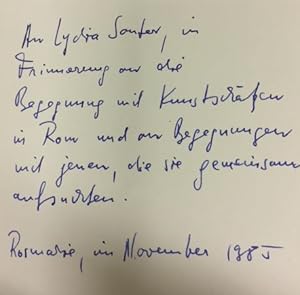 An Lydia Sauter, in
Erinnerung an die
Begegnung mit Kunstschätzen
in Rom und an Begegnungen
mit jenen, die sie gemeinsam
aufsuchten.
Rosmarie, im November 1985